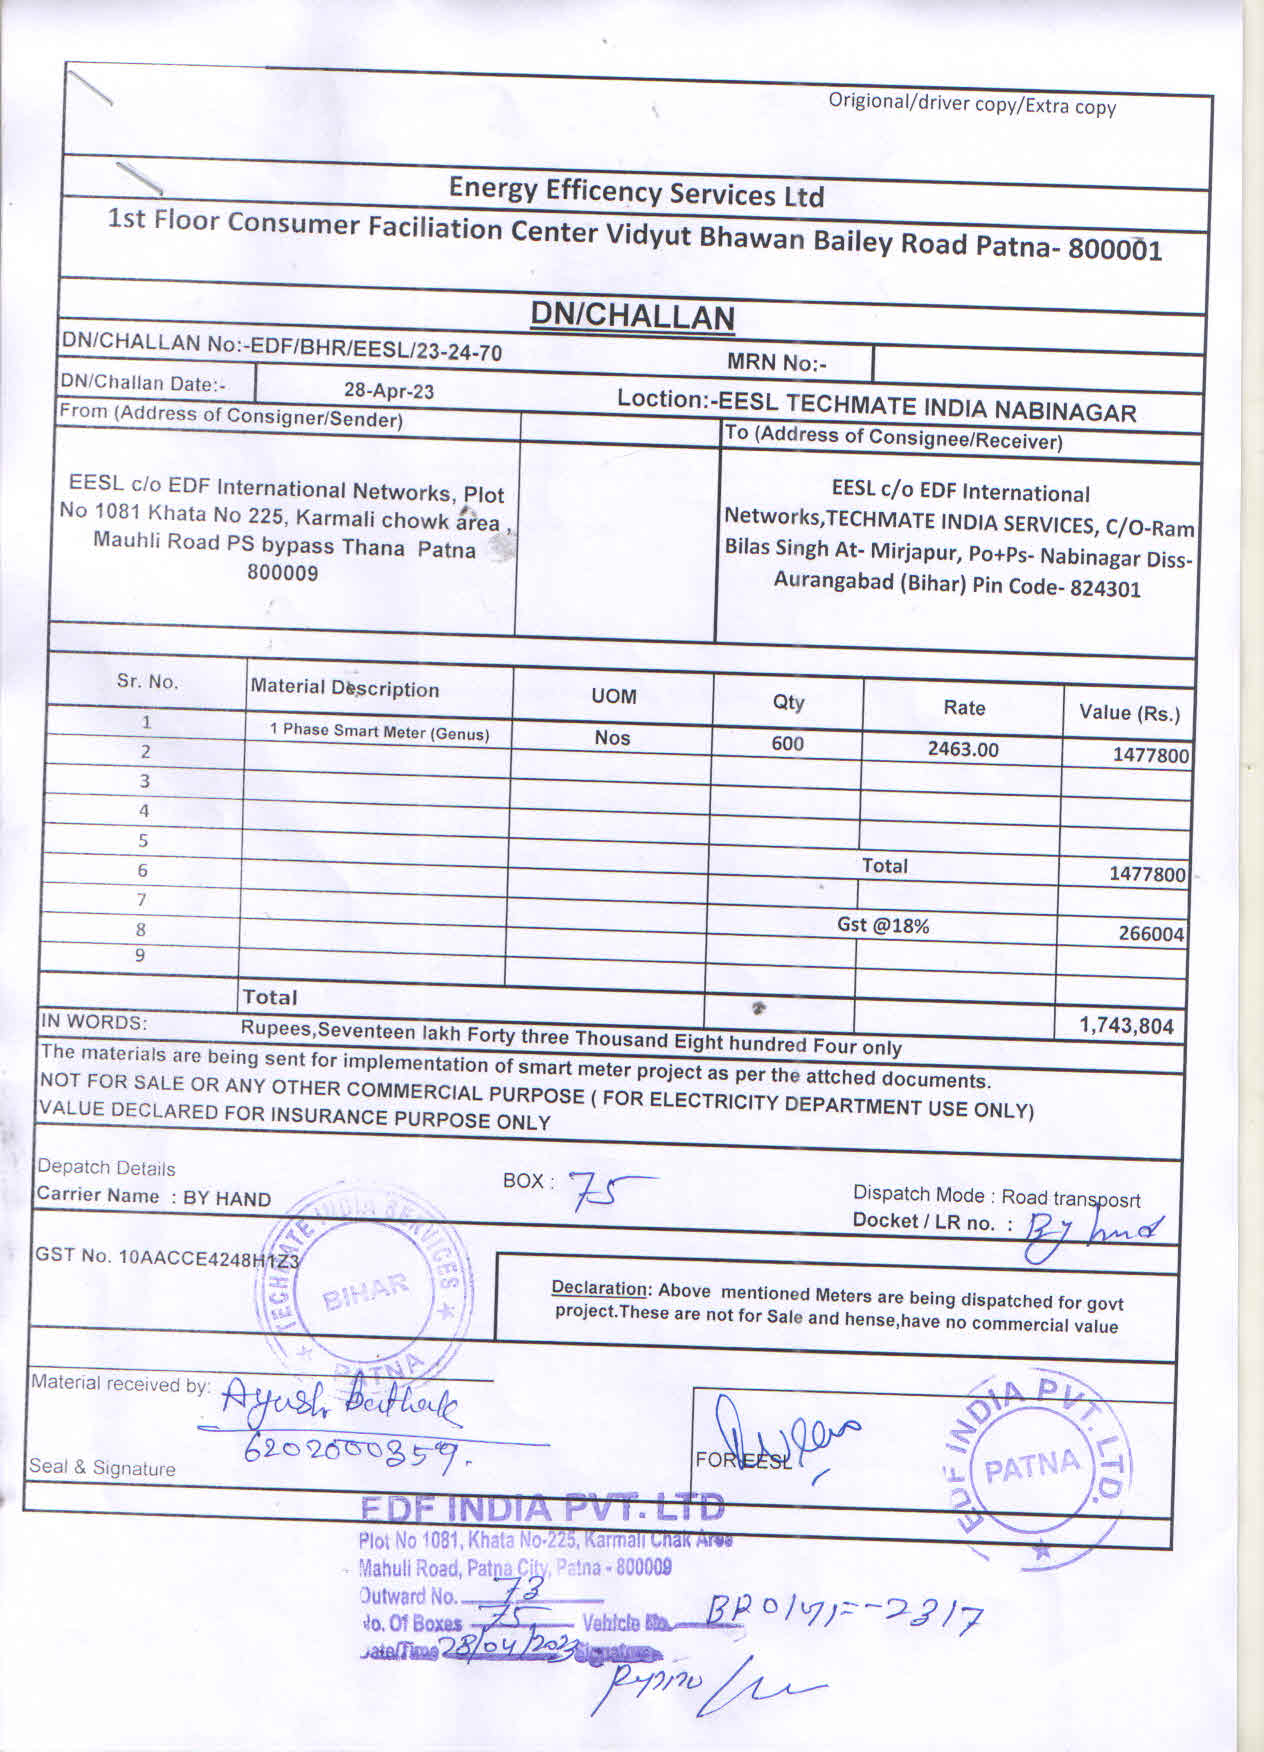 Origional/driver copy/Extra copy
Energy Efficency Services Ltd
1st Floor Consumer Faciliation Center Vidyut Bhawan Bailey Road Patna- 800001
DN/CHALLAN
DN/CHALLAN No:-EDF/BHR/EESL/23-24-70 MRN No:-
DN/Challan Date:- 28-Apr-23 Loction:-EESL TECHMATE INDIA NABINAGAR
From (Address of Consigner/Sender) To (Address of Consignee/Receiver)
EESL c/o EDF International Networks, Plot
No 1081 Khata No 225, Karmali chowk area ,
Mauhli Road PS bypass Thana Patna
800009
EESL c/o EDF International
Networks,TECHMATE INDIA SERVICES, C/O-Ram
Bilas Singh At- Mirjapur, Po+Ps- Nabinagar Diss-
Aurangabad (Bihar) Pin Code- 824301
Sr. No. Material Description UOM Qty Rate Value (Rs.)
1 1 Phase Smart Meter (Genus) Nos 600 2463.00 1477800
2
3
4
5
6 Total 1477800
7
8 Gst @18% 266004
9
Total 1,743,804
IN WORDS: Rupees,Seventeen lakh Forty three Thousand Eight hundred Four only
The materials are being sent for implementation of smart meter project as per the attched documents.
NOT FOR SALE OR ANY OTHER COMMERCIAL PURPOSE ( FOR ELECTRICITY DEPARTMENT USE ONLY)
VALUE DECLARED FOR INSURANCE PURPOSE ONLY
Depatch Details BOX : 75
Carrier Name : BY HAND
Dispatch Mode : Road transposrt
Docket / LR no. : By hand
GST No. 10AACCE4248H1Z3
TECHMATE INDIA SERVICES
BIHAR
PATNA
Declaration: Above mentioned Meters are being dispatched for govt
project.These are not for Sale and hense,have no commercial value
Material received by: Ayush
6202000359.
Seal & Signature
FOR EESL
EDF INDIA PVT. LTD.
PATNA
EDF INDIA PVT. LTD
Plot No 1081, Khata No-225, Karmali Chak Area
Mahuli Road, Patna City, Patna - 800009
Outward No. 73
No. Of Boxes 75 Vehicle No.
Date/Time 28/04/2023 Signature